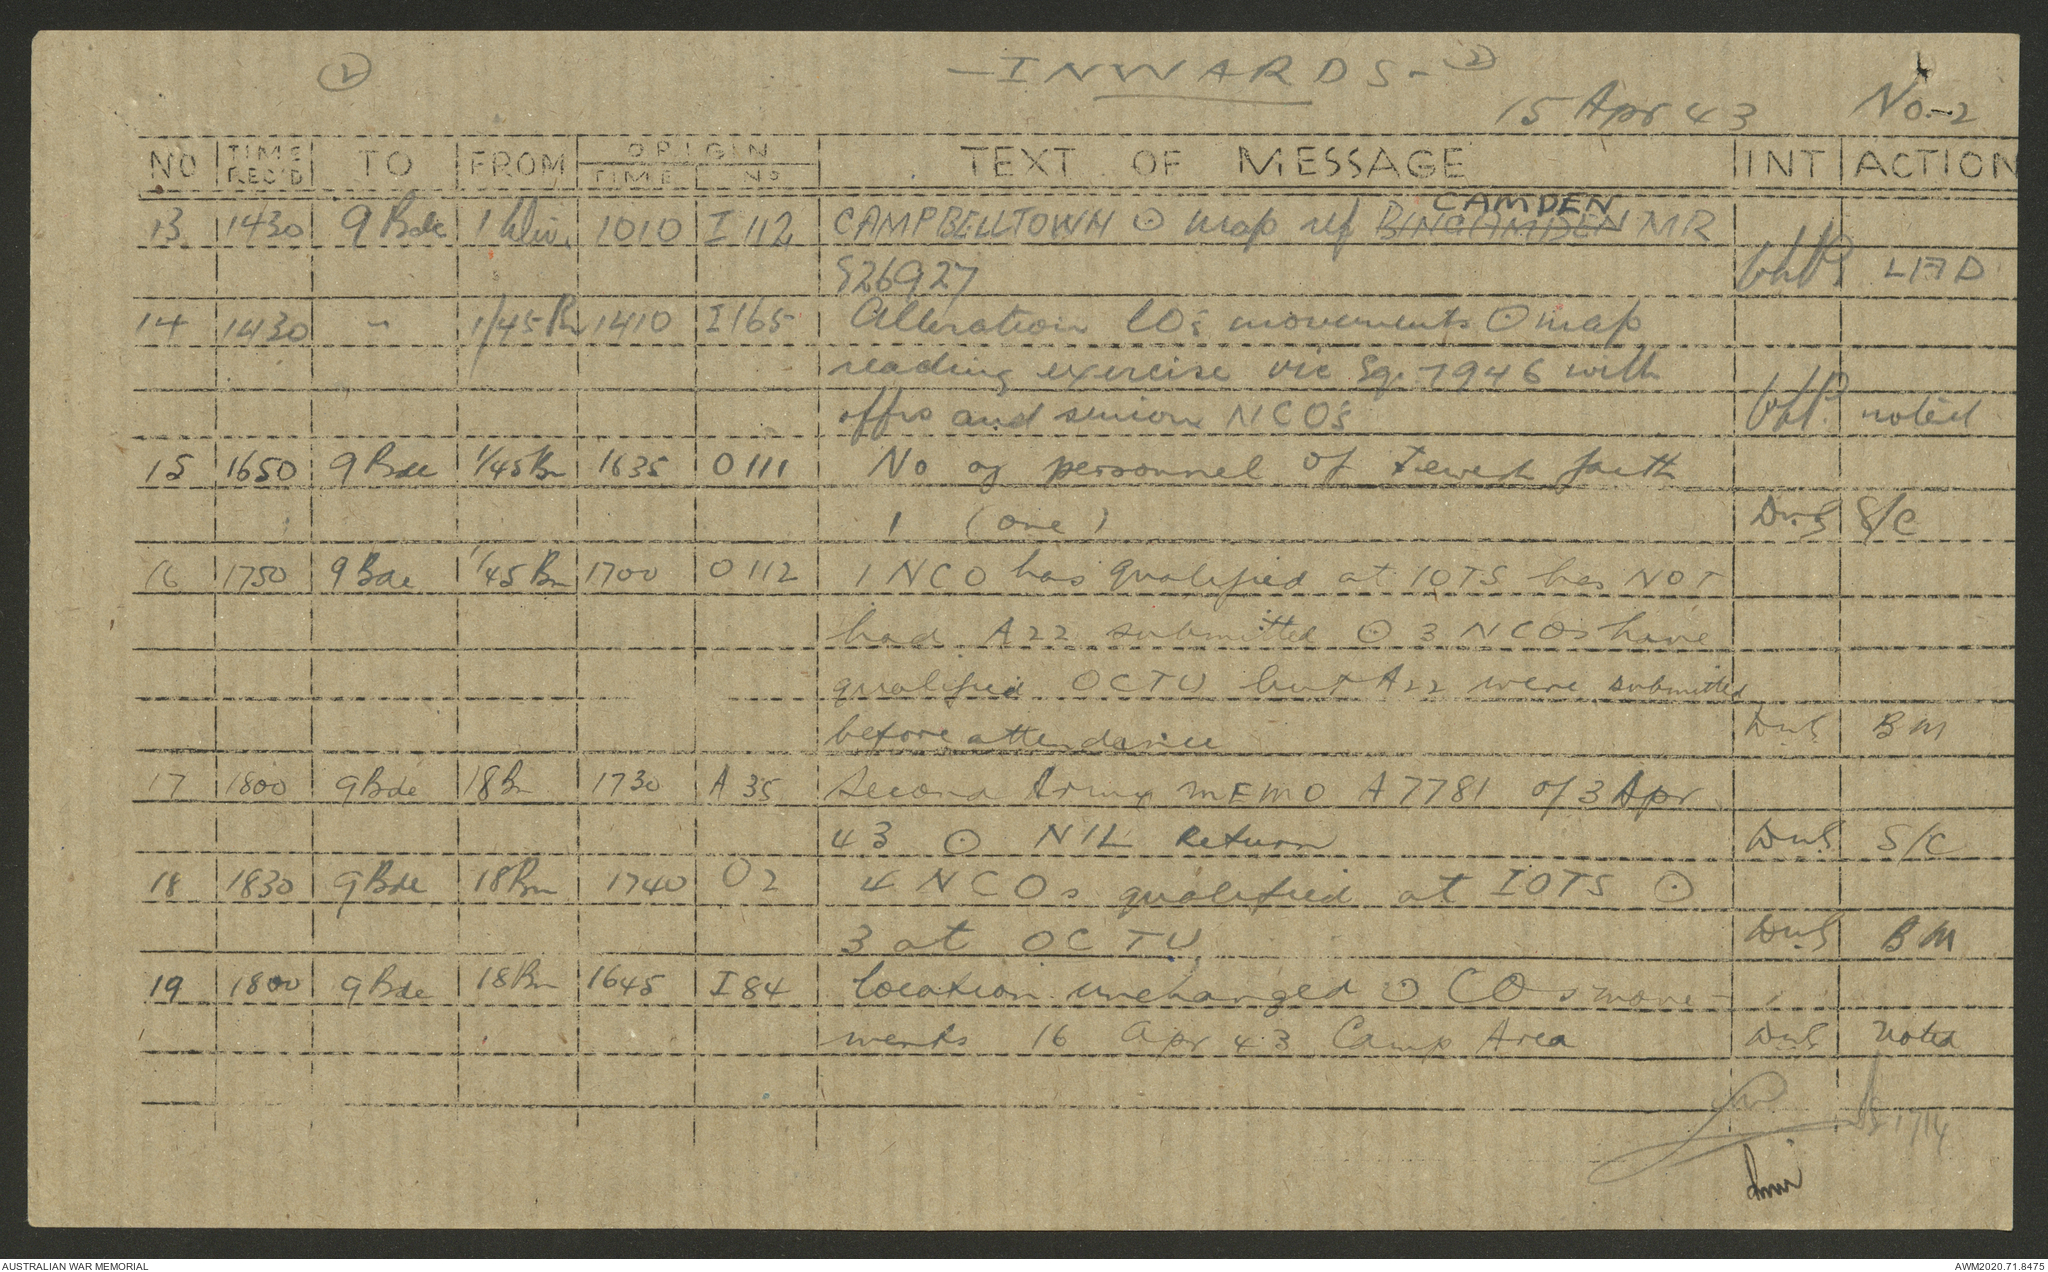 2
- INWARDS - 2
15 Apr 43 No-2
NO TIME REC'D TO FROM ORIGIN TIME NO TEXT OF MESSAGE INT ACTION
13 1430 9 Bde 1 Div. 1010 I 112 CAMPBELLTOWN ⊙ map ref BINGAMDEN CAMDEN MR
526927 LAD
14 1430 " 1/45 Bn 1410 I165 Alteration COs movements ⊙ map
reading exercise vic Sq. 7946 with
offrs and senior NCO's noted
15 1650 9 Bde 1/45 Bn 1635 O111 No of personnel of Jewish faith
1 (one) DWS S/C
16 1750 9 Bde 1/45 Bn 1700 O112 1 NCO has qualified at IOTS has NOT
had A22 submitted ⊙ 3 NCOs have
qualified OCTU but A22 were submitted
before attendance DWS BM
17 1800 9 Bde 18 Bn 1730 A 35 Second Army MEMO A7781 of 3 Apr
43 ⊙ NIL Return DWS S/C
18 1830 9 Bde 18 Bn 1740 O2 4 NCOs qualified at IOTS ⊙
3 at OCTU DWS BM
19 1800 9 Bde 18 Bn 1645 I 84 location unchanged ⊙ COs move-
ments 16 Apr 43 Camp Area DWS Noted
17/4
AUSTRALIAN WAR MEMORIAL AWM2020.71.8475